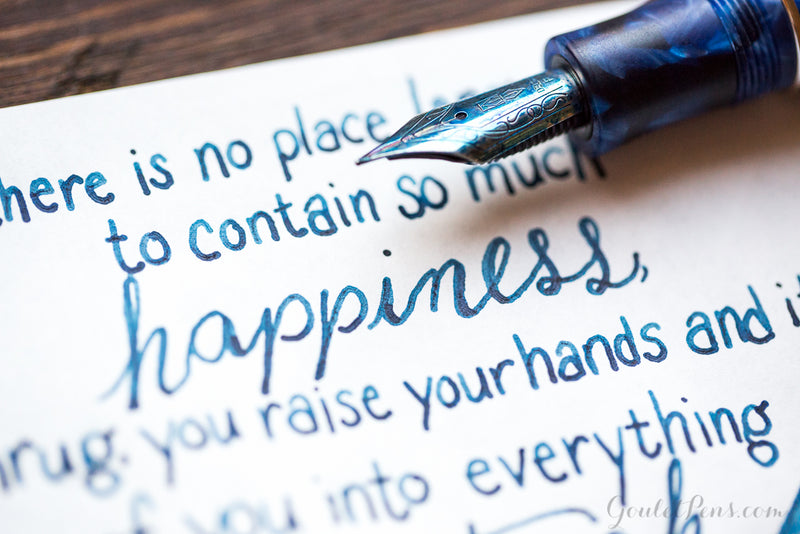 there is no place
to contain so much
happiness,
shrug, you raise your hands and it
of you into everything
GouletPens.com